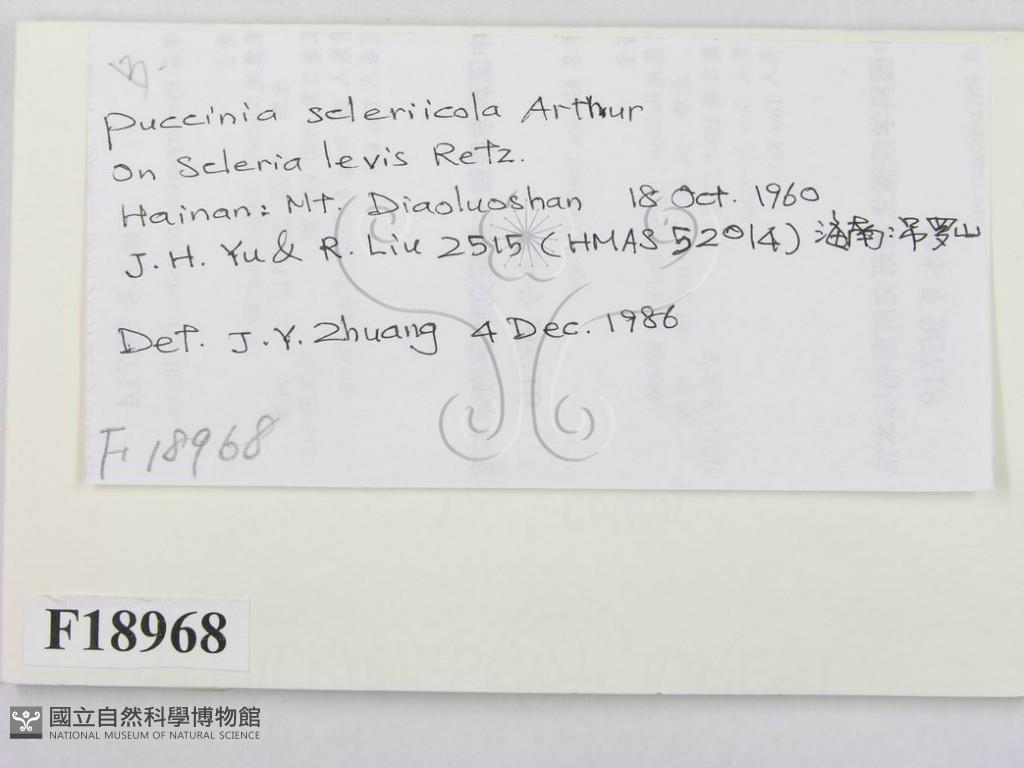 B.
Puccinia scleriicola Arthur
On Scleria levis Retz.
Hainan: Mt. Diaoluoshan 18 Oct. 1960
J. H. Yu & R. Liu 2515 (HMAS 52014) 海南:吊罗山
Det. J. Y. Zhuang 4 Dec. 1986
F 18968
F18968
國立自然科學博物館
NATIONAL MUSEUM OF NATURAL SCIENCE